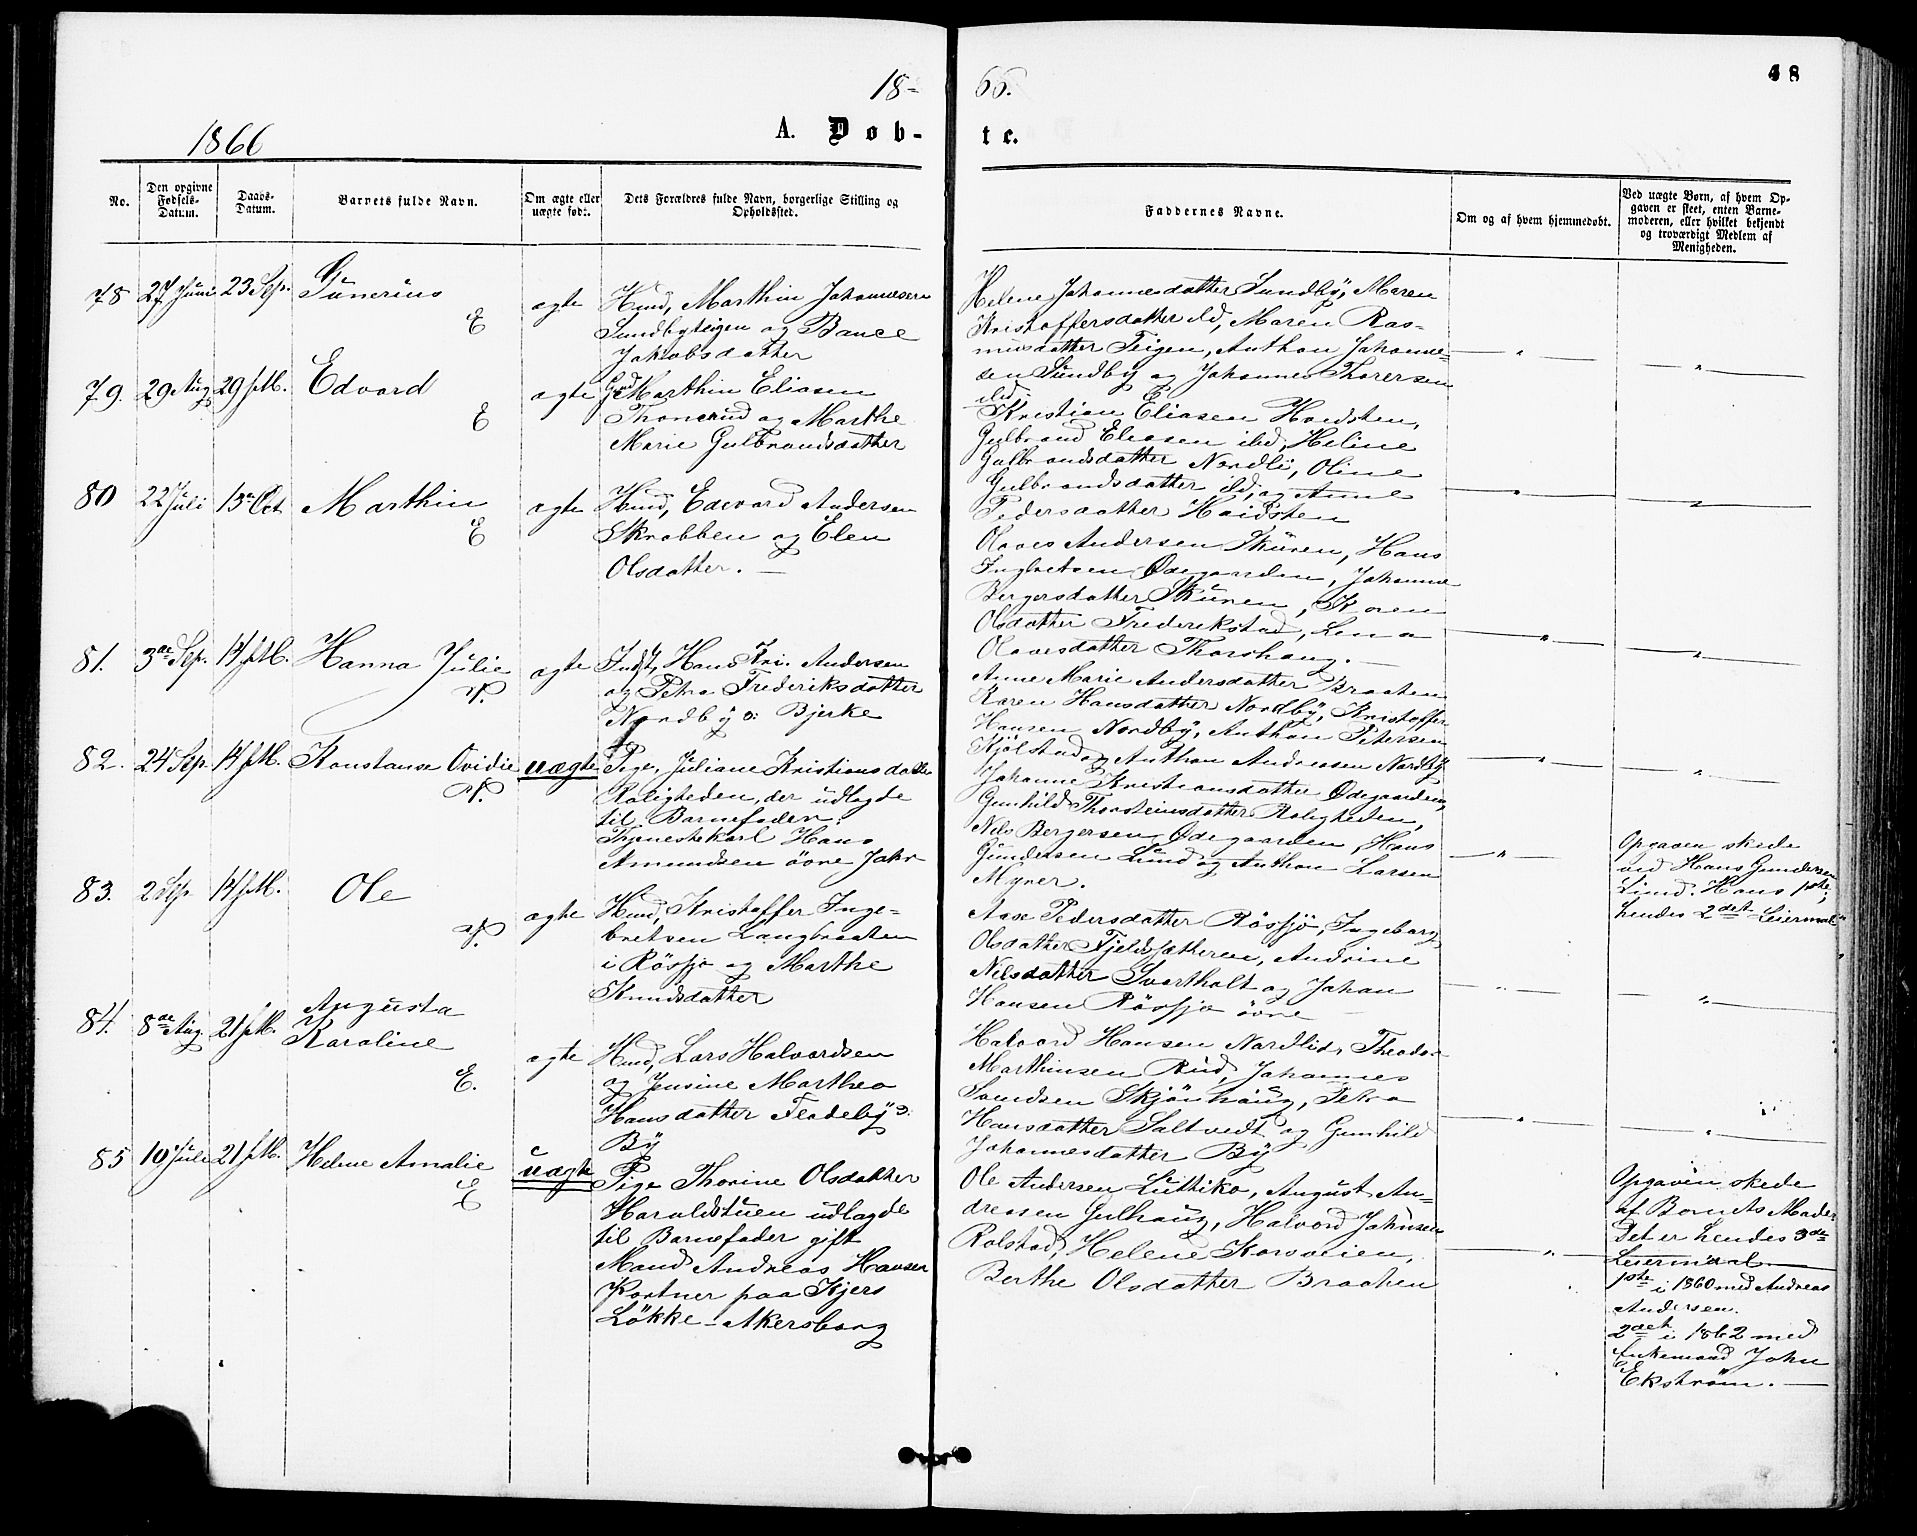 18-
66.
48
A. Døb-
te.
1866
No.
Den opgivne
Fødsels-
Datum.
Daabs-
Datum.
Barnets fulde Navn.
Om ægte eller
uægte født.
Dets Forældres fulde Navn, borgerlige Stilling og
Opholdssted.
Faddernes Navne.
Om og af hvem hjemmedøbt.
Ved uægte Børn, af hvem Op-
gaven er skeet, enten Barne-
moderen, eller hvilket bekjendt
og troværdigt Medlem af
Menigheden.
78 27 Juni 23 Sep. Gunerius
E
ægte
Husmd, Marthin Johannesen
Sundbyteigen og
Jakobsdatter
Helene Johannesdatter Sundby, Maren
Kristoffersdatter ibd, Maren Ras-
musdatter Teigen, Anthon Johanne-
sen Sundby og Johannes Thorersen
ibd.
79. 29 Aug 29 Edvard
E
ægte
Gmd Marthin Eliasen
Thonerud og Marthe
Marie Gulbrandsdatter
Kristian Eliasen Hvidsten,
Gulbrand Eliasen ibd, Heline
Gulbrandsdatter Nordli, Oline
Gulbrandsdatter ibd, og Anne
Pedersdatter Hvidsten
80 22 Juli 13 Oct Marthin
E
ægte
Husmd, Edevard Andersen
Skrabben og Elen
Olsdatter. —
Olaves Andersen Skuren, Hans
Ingbretsen Ødegaarden, Johanne
Bergersdatter Skuren, Karen
Olsdatter Frederikstad, Lena
Olavesdatter Thorshaug. —
81. 3die Sep. 14 Hanna Julie
V.
ægte
Inds, Hans Kri. Andersen
og Petra Frederiksdatter
Nordby u: Bjerke
Anne Marie Andersdatter Braaten
Karen Hansdatter Nordby, Kristoffer
Hansen Nordby, Anthon Petersen
Kjølstad og Anthon Andreasen Nordby
82. 24 Sep. 14 Konstanse Ovidie
V.
uægte
Pige, Juliane Kristiansdatter
Roligheden, der udlagde
til Barnefader:
Thjenestekarl Hans
Amundsen øvre Jahr
Johanne Kristiansdatter Ødegaarden,
Gunhild Thorsteinsdatter Roligheden,
Nils Bergersen Ødegaarden, Hans
Gundersen Lund og Anthon Larsen
Myrer.
Opgaven skede
ved Hans Gundersen
Lund. Hans 1ste,
hendes 2det Leiermaal
83. 2 Sep 14 Ole
V.
ægte
Husmd, Kristoffer Inge-
bretsen Langbraaten
i Røssjø og Marthe
Knudsdatter
Aase Pedersdatter Røssjø, Ingeborg
Olsdatter Fjeldsætheren, Andrine
Nilsdatter Svartholt og Johan
Hansen Røssjø øvre
84. 8de Aug 21 Augusta
Karoline
E.
ægte
Husmd, Lars Halvordsen
og Jensine Marthea
Hansdatter Fladeby u:
By
Halvord Hansen Nordlid, Theodor
Marthinsen Rud, Johannes
Svendsen Skjønhaug, Petra
Hansdatter Saltvedt og Gunhild
Johannesdatter By
85 10 Juli 21 Helene Amalie
E
uægte
Pige Thorine Olsdatter
Haraldstuen udlagde
til Barnefader gift
Mand Andreas Hansen
Kortner paa Kjers
Løkke - Akersborg
Ole Andersen Luthiko, August An-
dreasen Gulhaug, Halvord Johnsen
Rolstad, Helene Korsveien,
Berthe Olsdatter Braaten
Opgaven skede
af Barnets Moder
Det er hendes 3die
Leiermaal
1ste i 1860 med Andreas
Andersen.
2det i 1862 med
Enkemand John
Ekstrøm. —